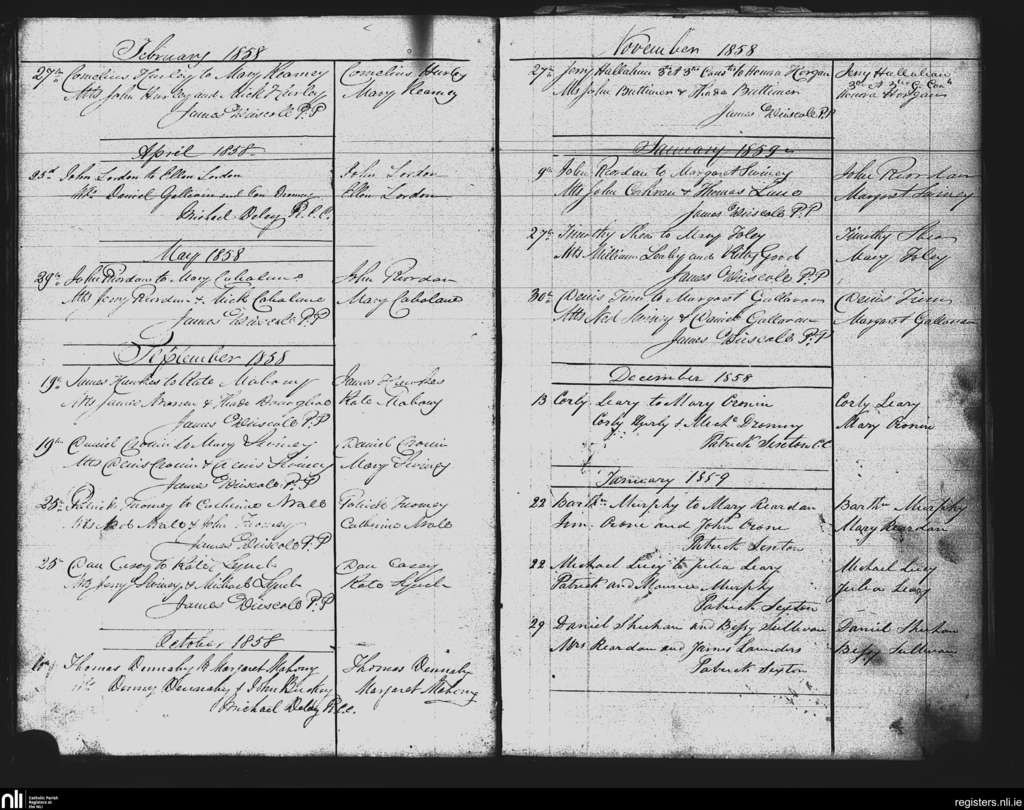 February 1858
27th Cornelius Hurley to Mary Kearney
Atts John Hurley and Mick Hurley
James Driscole P.P
Cornelius Hurley
Mary Kearney
April 1858
John Lordon to Ellen Lordon
Daniel and
Michael Delay R.C.C.
John Lordon
Ellen Lordon
May 1858
29th John Riordan to Mary Cahalane
Atts Jerry Riordan & Mick Cahalane
James Driscole P.P
John Riordan
Mary Cahalane
September 1858
19th James Hawkes to Kate Mahony
Atts &
James Driscole P.P
James Hawkes
Kate Mahony
19th Daniel Cronin to Mary Swiney
Atts Denis Cronin & Denis
James Driscole P.P
Daniel Cronin
Mary Swiney
25th Patrick Twomey to Catherine Neale
Atts Neale & John Twomey
James Driscole P.P
Patrick Twomey
Catherine Neale
25th Dan Casey to Kate Lynch
Atts Jerry Swiney & Michael Lynch
James Driscole P.P
Dan Casey
Kate Lynch
October 1858
Thomas Dennahy & Margaret Mahony
Denny Dennahy & John Buckley
Michael Delay R.C.C.
Thomas Dennahy
Margaret Mahony
November 1858
27th Jerry Hallahan 3rd & 3rd Cons to Honra Horgan
Atts John Buttimer & Buttimer
James Driscole P.P
Jerry Hallahan
3rd & 3rd
Honra Horgan
January 1859
9th John Riordan to Margaret Swiney
Atts John Corkoran & Thomas Lane
James Driscole P.P
John Riordan
Margaret Swiney
27th Timothy Shea to Mary Foley
Atts William and Kitty Good
James Driscole P.P
Timothy Shea
Mary Foley
30th Denis to Margaret Gallavan
Atts Ned Swiney & Daniel Gallavan
James Driscole P.P
Denis
Margaret Gallavan
December 1858
13 Corly Leary to Mary Cronin
Corly & Mich.
Patrick Sexton CC
Corly Leary
Mary Cronin
January 1859
22 Barthw Murphy to Mary Reardan
Crone and John Crone
Patrick Sexton
Barthw Murphy
Mary Reardan
22 Michael Lucy to Julia Leary
Patrick and Maurice Murphy
Patrick Sexton
Michael Lucy
Julia Leary
29 Daniel Sheehan and Bessy Sullivan
Mrs Reardon and James Saunders
Patrick Sexton
Daniel Sheehan
Bessy Sullivan
nli
Catholic Parish
Registers at
the NLI
registers.nli.ie